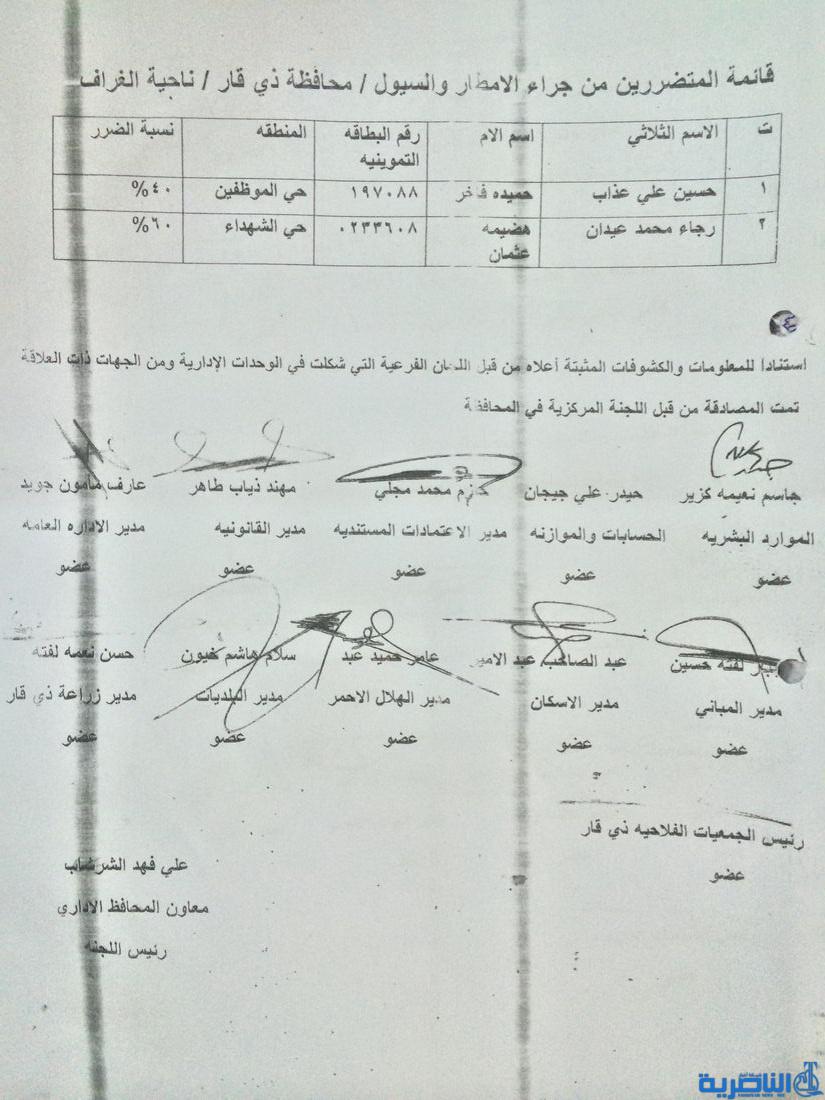 قائمة المتضررين من جراء الامطار والسيول / محافظة ذي قار / ناحية الغراف
ت الاسم الثلاثي اسم الام رقم البطاقه التموينيه المنطقه نسبة الضرر
١ حسين علي عذاب حميده فاخر ١٩٧٠٨٨ حي الموظفين ٤٠%
٢ رجاء محمد عيدان هضيمه عثمان ٠٢٣٣٦٠٨ حي الشهداء ٦٠%
٤
استنادا للمعلومات والكشوفات المثبتة أعلاه من قبل اللجان الفرعية التي شكلت في الوحدات الإدارية ومن الجهات ذات العلاقة
تمت المصادقة من قبل اللجنة المركزية في المحافظة
جاسم نعيمه كزير حيدر علي جيجان حازم محمد مجلي مهند ذياب طاهر عارف مأمون جويد
الموارد البشريه الحسابات والموازنه مدير الاعتمادات المستنديه مدير القانونيه مدير الاداره العامه
عضو عضو عضو عضو عضو
لفته حسين عبد الصاحب عبد الامير عامر حميد عبد سلام هاشم خيون حسن نعمه لفته
مدير المباني مدير الاسكان مدير الهلال الاحمر مدير البلديات مدير زراعة ذي قار
عضو عضو عضو عضو عضو
رئيس الجمعيات الفلاحيه ذي قار
عضو
علي فهد الشرشاب
معاون المحافظ الاداري
رئيس اللجنه
الناصرية